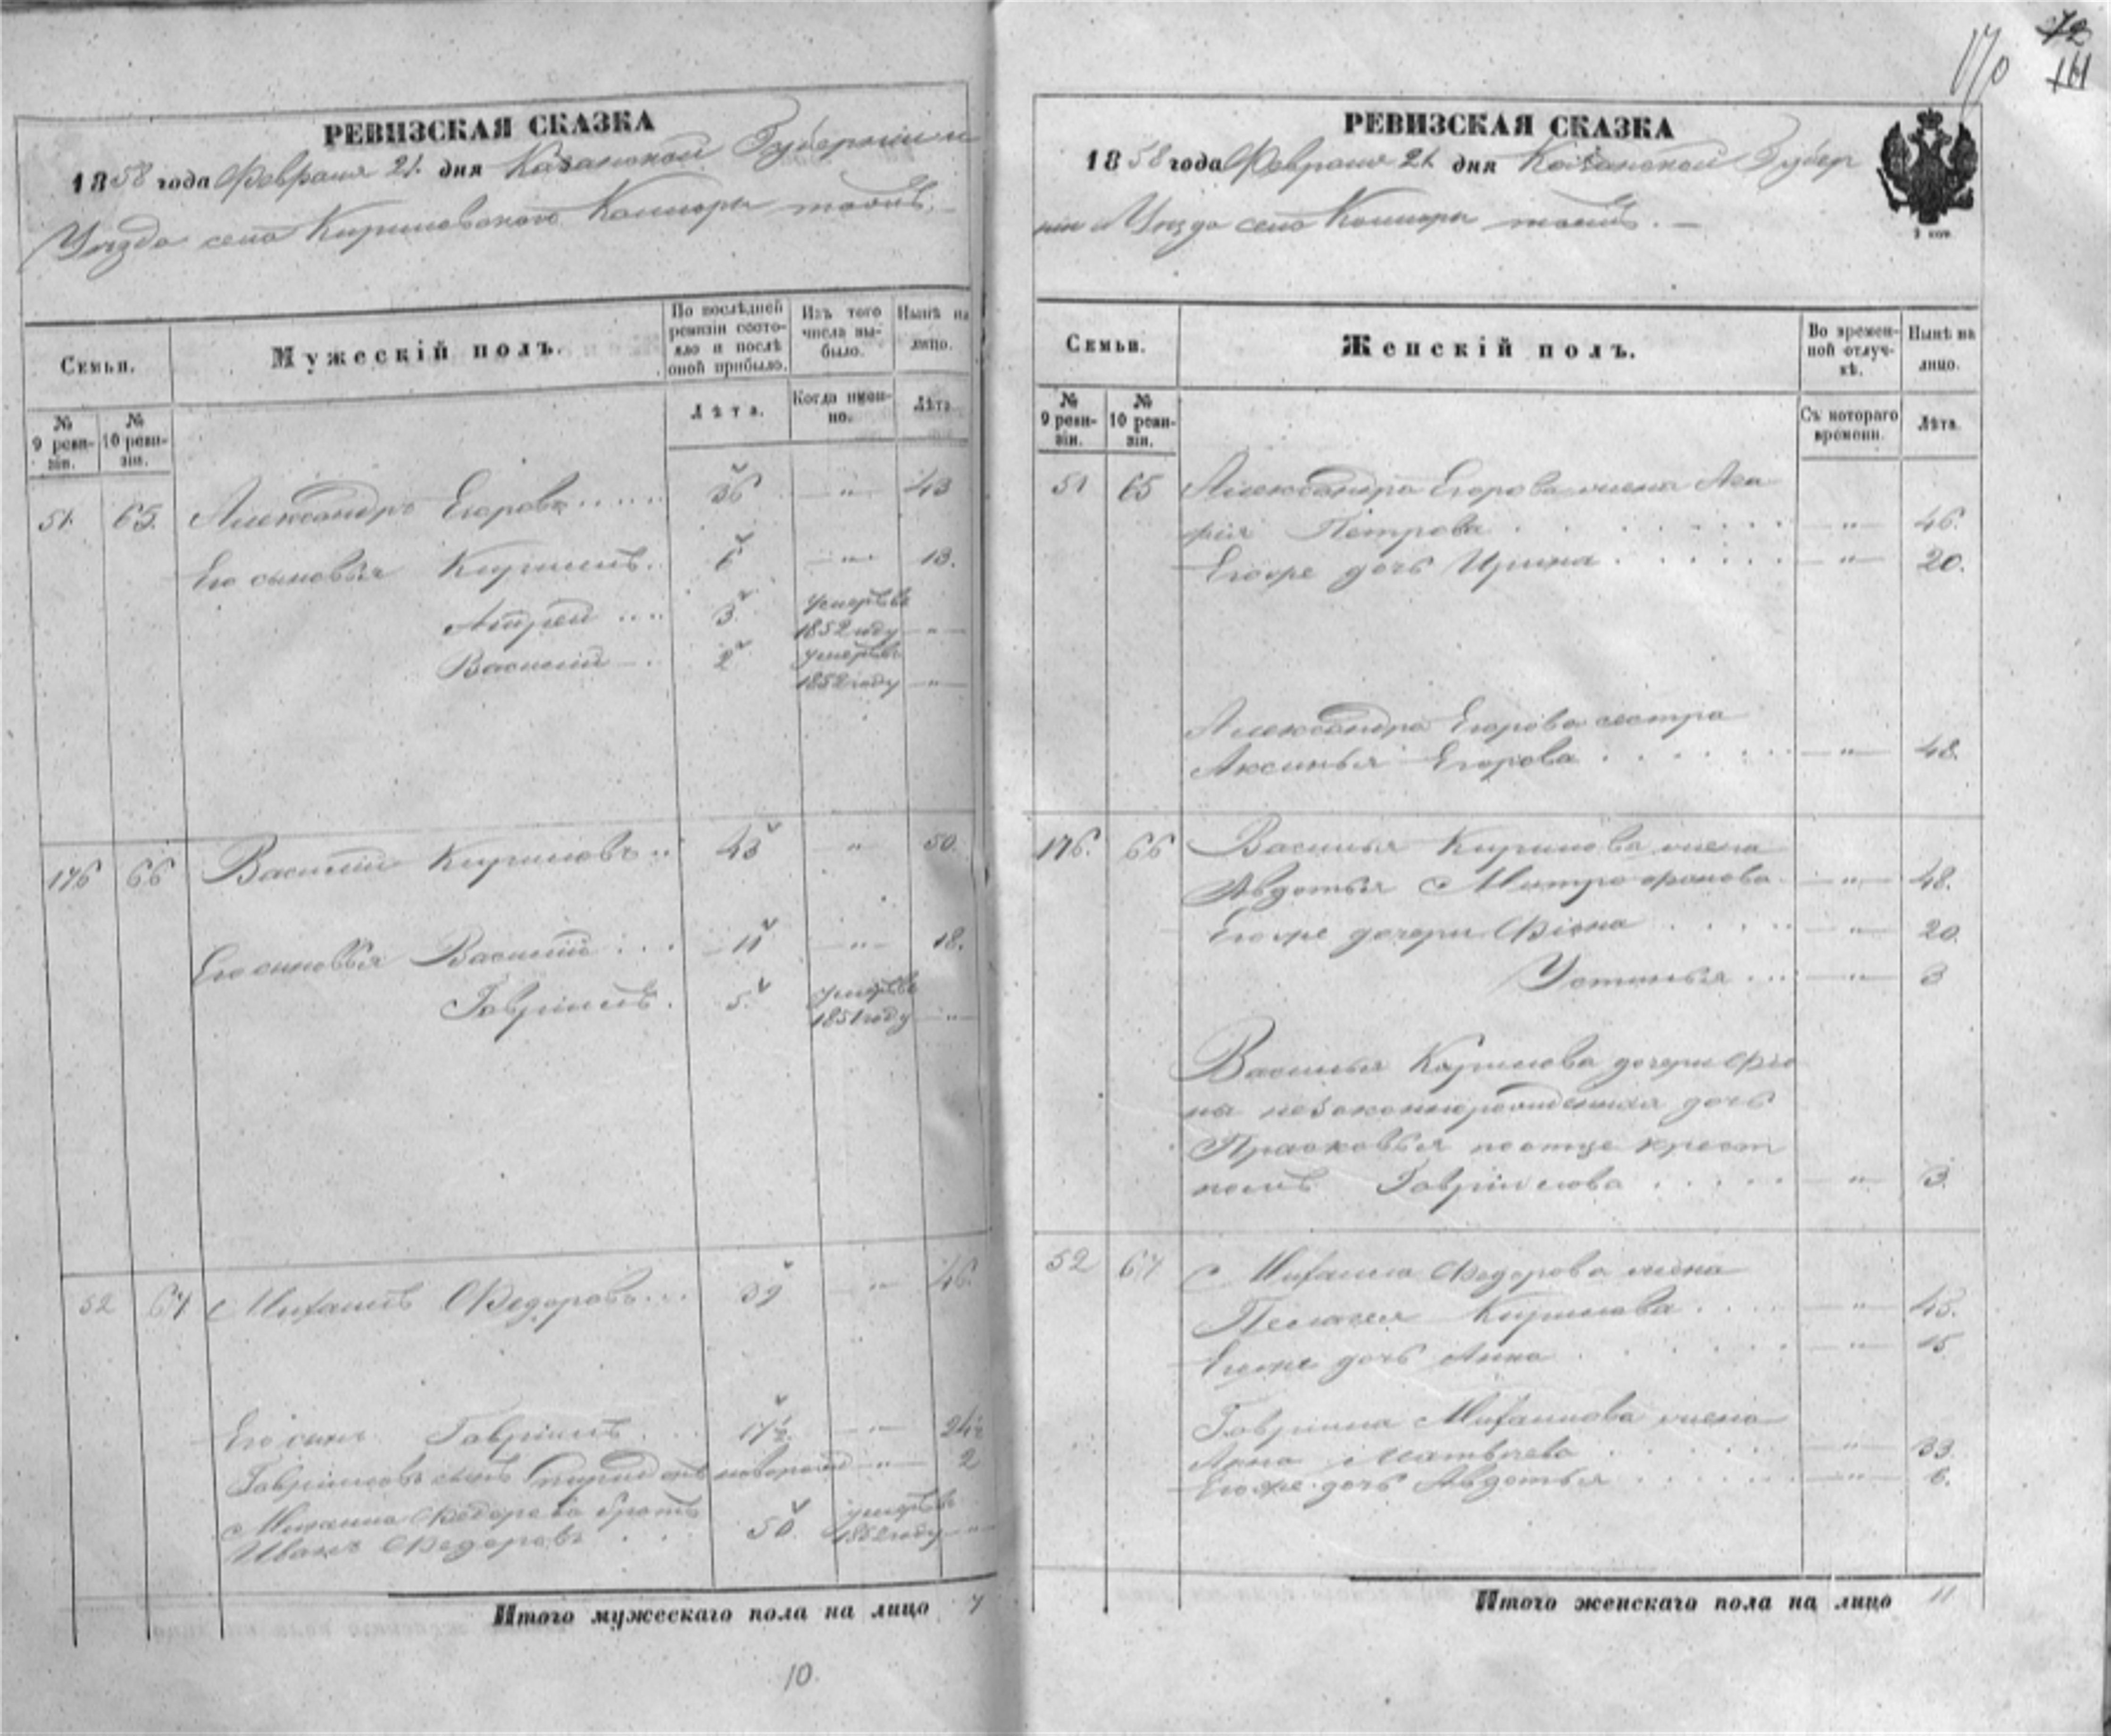 РЕВИЗСКАЯ СКАЗКА
1858 года Февраля 21. дня Казанской Губерніи и
Уѣзда села Кириловскаго Кошкори тожъ.
Семьи.
Мужескій полъ.
По послѣдней ревизіи состояло и послѣ оной прибыло.
Изъ того числа выбыло.
Нынѣ на лицо.
№ 9 ревизіи.
№ 10 ревизіи.
Лѣта.
Когда именно.
Лѣта
51. 65. Александръ Егоровъ 36 " 43
Его сыновья Кирилъ. 6 " 13.
Андрей 3. умеръ въ
1852 году "
Василій 2 умеръ въ
1852 году "
176 66 Василій Кириловъ 43 " 50.
Его сыновья Василій 11 " 18.
Гаврiилъ. 5. умеръ въ
1851 году "
52 67 Михаилъ Федоровъ 39 " 46.
Его сынъ Гаврiилъ 17½ " 24½
Гаврiиловъ сынъ Спиридонъ новорожд " 2
Михаила Федорова братъ
Иванъ Федоровъ 50. умеръ въ
1852 году "
Итого мужескаго пола на лицо 7
10.
170
72
111
РЕВИЗСКАЯ СКАЗКА
1858 года Февраля 21. дня Казанской Губер
ніи и Уѣзда села Кошкори тожъ.
Семьи.
Женскій полъ.
Во временной отлучкѣ.
Нынѣ на лицо.
№ 9 ревизіи.
№ 10 ревизіи.
Съ котораго времени.
Лѣта.
51 65 Александра Егорова жена Ага
фія Петрова " 46.
Его же дочь Ирина " 20.
Александра Егорова сестра
Аксинья Егорова " 48.
176. 66 Василья Кирилова жена
Авдотья Митрофанова " 48.
Его же дочери Фіона " 20.
Устинья " 3
Василья Кирилова дочери Фіо
ны незаконнорожденная дочь
Прасковья по отце крест
номъ Гаврiилова " 3.
52 67 Михаила Федорова жена
Пелагея Кирилова " 45.
Его же дочь Анна " 15
Гаврiила Михаилова жена
Анна Матвѣева " 33.
Его же дочь Авдотья " 6.
Итого женскаго пола на лицо 11